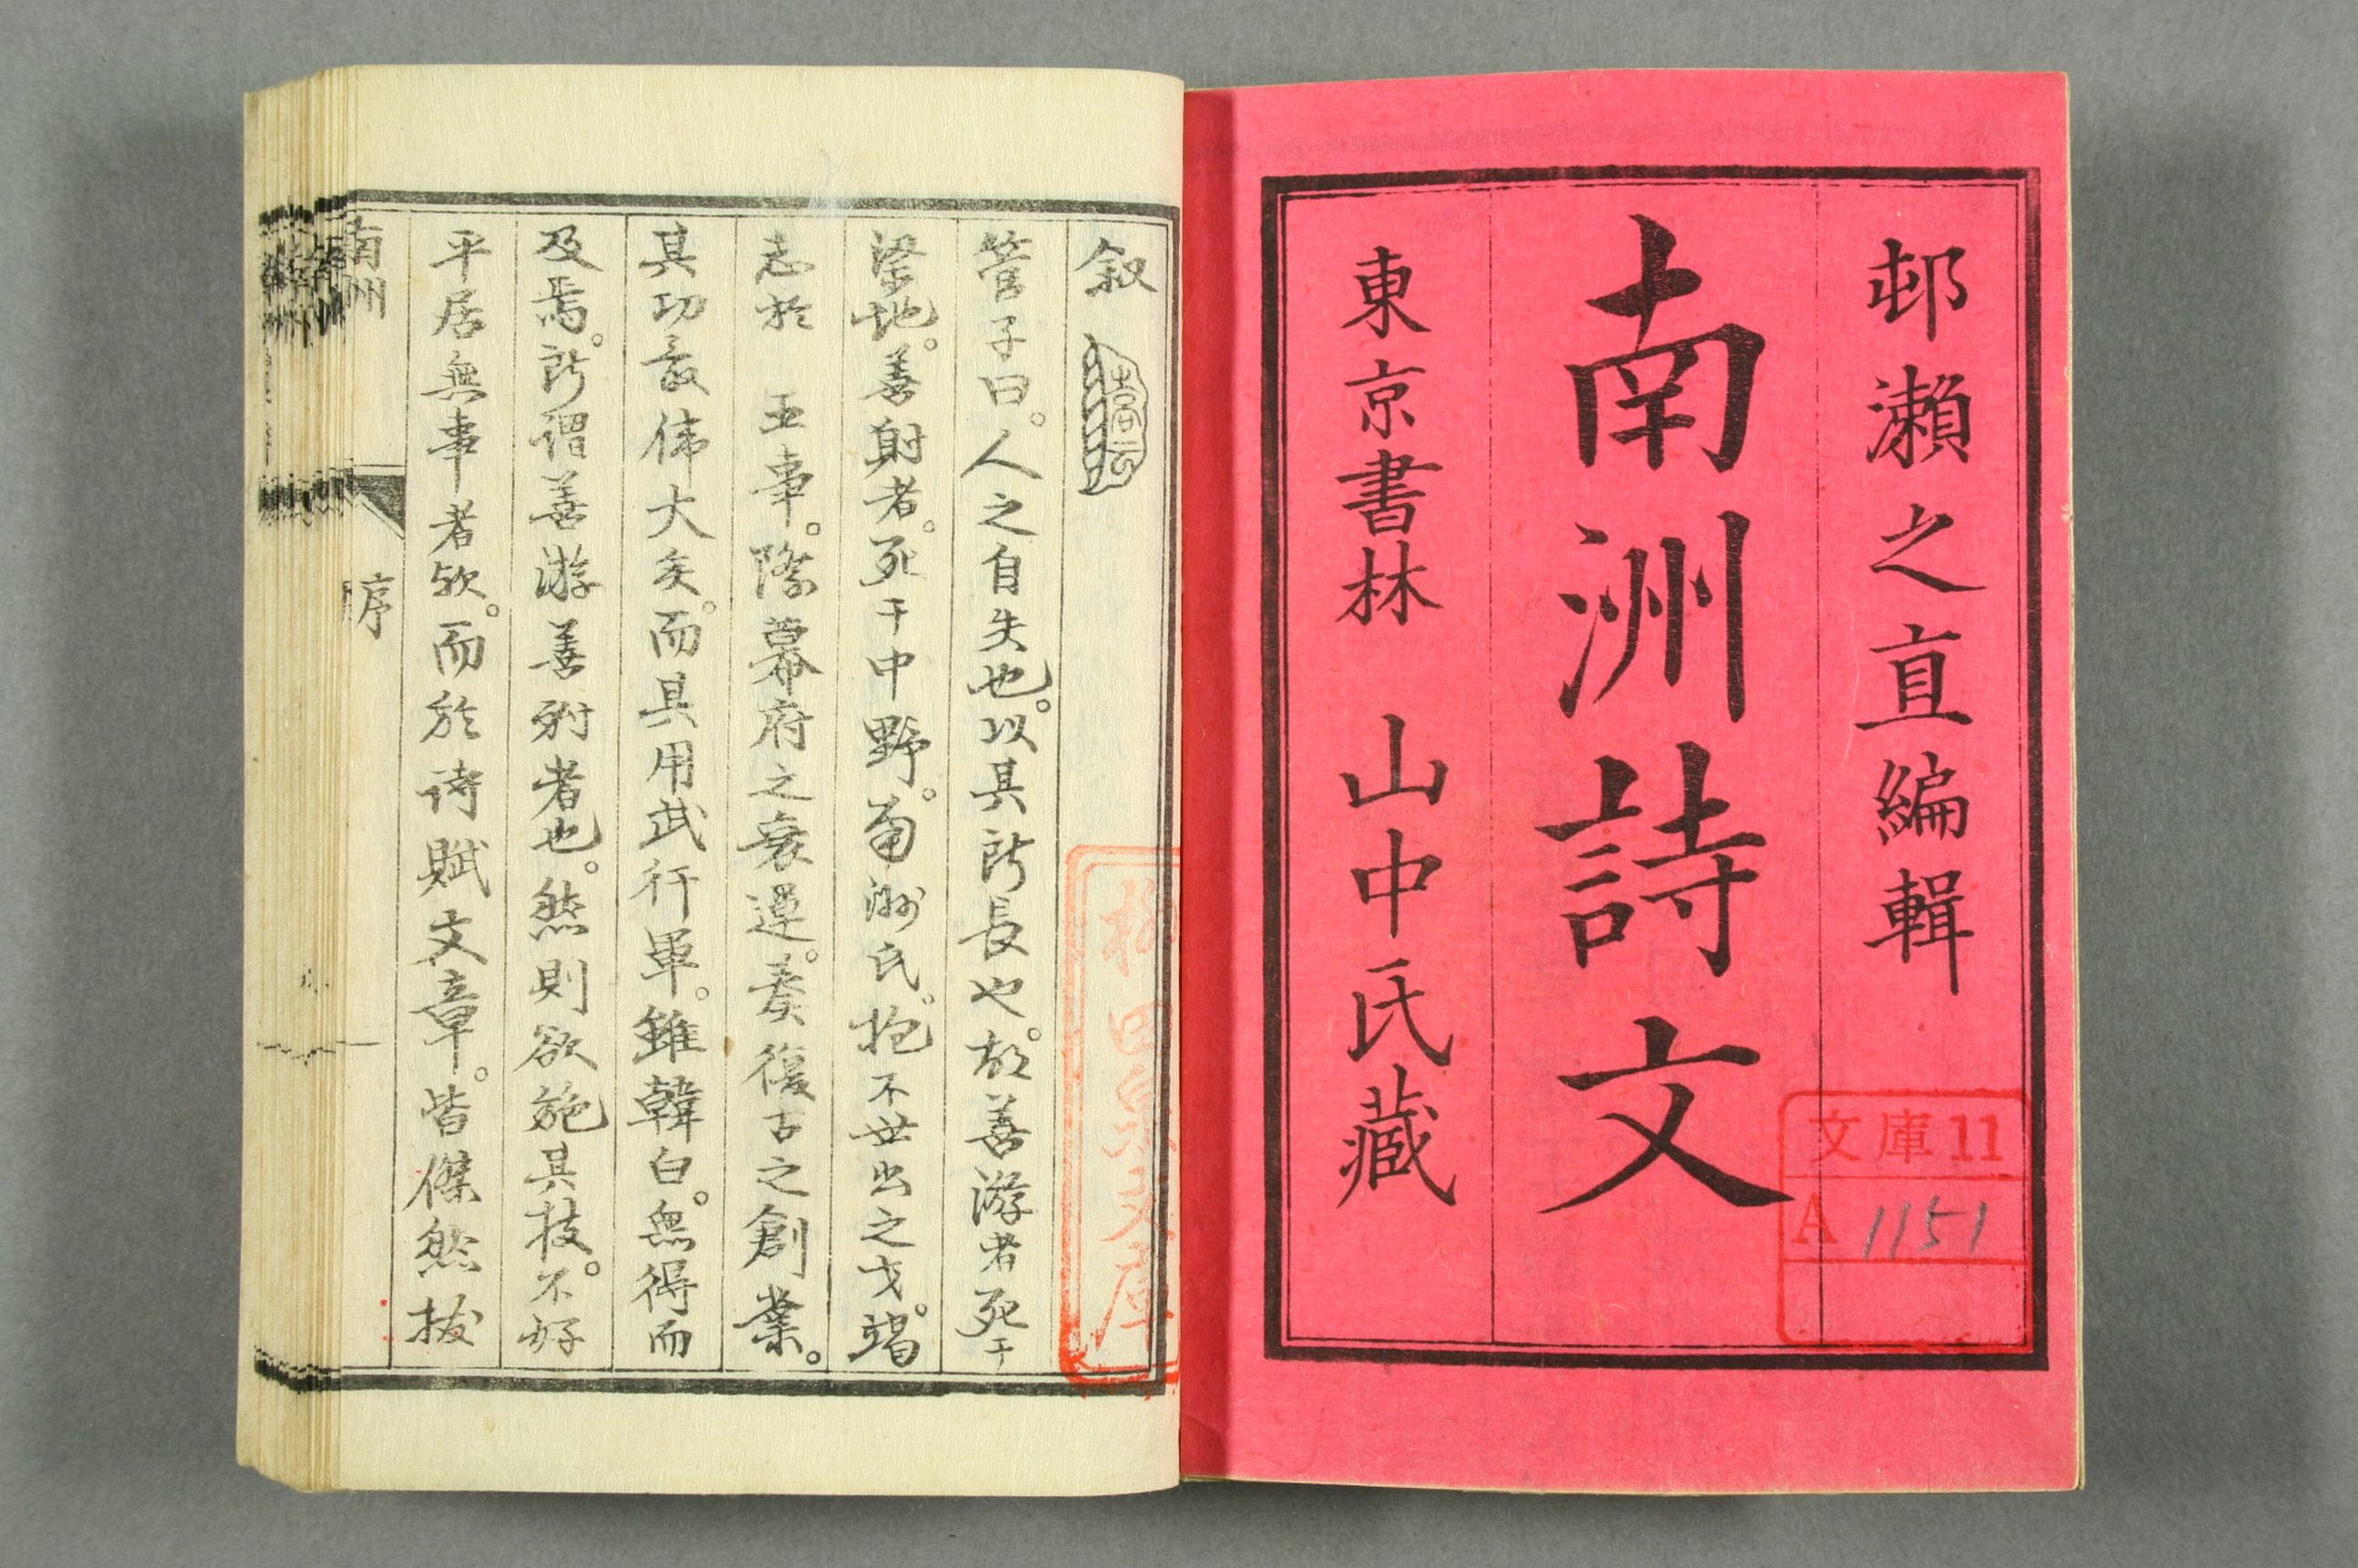 邨瀨之直編輯
南洲詩文
東京書林 山中氏藏
文庫11
A 1151
叙
管子曰。人之自失也。以其所長也。故善游者死于
梁地。善射者。死于中野。南洲氏。抱不世出之才。竭
志於 王事。際幕府之衰運。奏復古之創業。
其功最偉大矣。而其用武行軍。雖韓白。無得而
及焉。所謂善游善射者也。然則欲施其技。不好
平居無事者欤。而於诗賦文章。皆傑然拔
南州
序